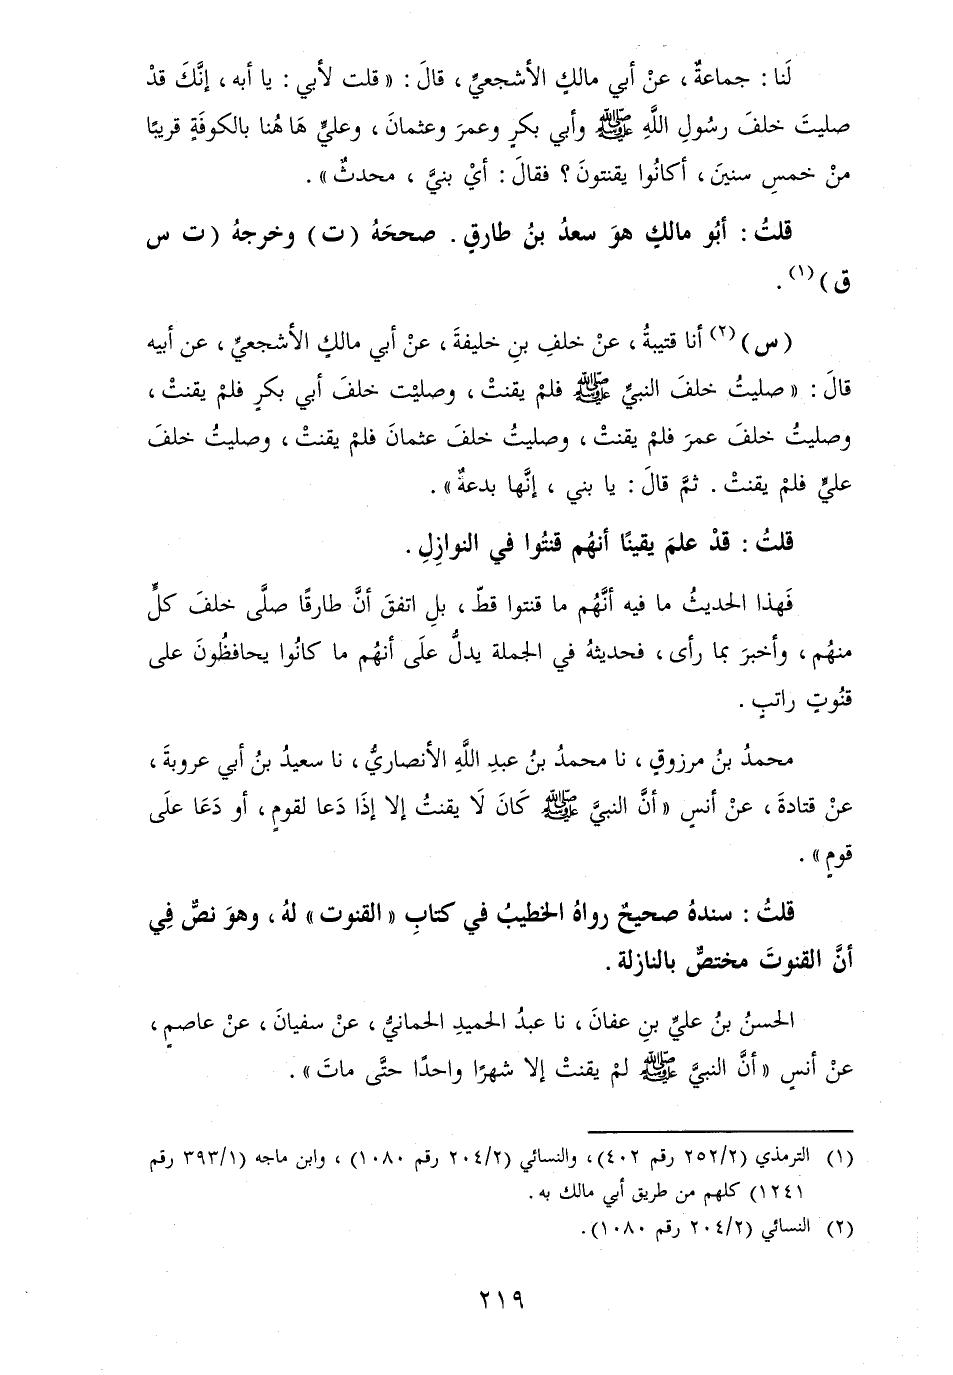 لَنا : جماعةٌ ، عنْ أبي مالكٍ الأشجعيِّ ، قالَ : « قلت لأبي : يا أبه ، إنَّكَ قدْ
صليتَ خلفَ رسُولِ اللَّهِ ﷺ وأبي بكرٍ وعمرَ وعثمانَ ، وعليٍّ هَا هُنا بالكوفَةِ قريبًا
منْ خمسِ سنينَ ، أكانُوا يقنتونَ ؟ فقالَ : أيْ بنيَّ ، محدثٌ » .
قلتُ : أبُو مالكٍ هوَ سعدُ بنُ طارقٍ . صححَهُ (ت) وخرجهُ (ت س
ق)(١) .
(س)(٢) أنا قتيبةُ ، عنْ خلفِ بنِ خليفةَ ، عنْ أبي مالكٍ الأشجعيِّ ، عن أبيه
قالَ : « صليتُ خلفَ النبيِّ ﷺ فلمْ يقنتْ ، وصليْت خلفَ أبي بكرٍ فلمْ يقنتْ ،
وصليتُ خلفَ عمرَ فلمْ يقنتْ ، وصليتُ خلفَ عثمانَ فلمْ يقنتْ ، وصليتُ خلفَ
عليٍّ فلمْ يقنتْ . ثمَّ قالَ : يا بني ، إنَّها بدعةٌ » .
قلتُ : قدْ علمَ يقينًا أنهُم قنتُوا في النوازِلِ .
فَهذا الحديثُ ما فيه أنَّهُم ما قنتوا قطّ ، بلِ اتفقَ أنَّ طارقًا صلَّى خلفَ كلٍّ
منهُم ، وأخبرَ بما رأى ، فحديثهُ في الجملة يدلُّ علَى أنهُم ما كانُوا يحافظُونَ على
قنُوتٍ راتبٍ .
محمدُ بنُ مرزوقٍ ، نا محمدُ بنُ عبدِ اللَّهِ الأنصاريُّ ، نا سعيدُ بنُ أبي عروبةَ ،
عنْ قتادةَ ، عنْ أنسٍ « أنَّ النبيَّ ﷺ كَانَ لَا يقنتُ إلا إذَا دَعا لقومٍ ، أو دَعَا علَى
قومٍ » .
قلتُ : سندهُ صحيحٌ رواهُ الخطيبُ في كتابِ « القنوت » لهُ ، وهوَ نصٌّ فِي
أنَّ القنوتَ مختصٌّ بالنازلة .
الحسنُ بنُ عليِّ بنِ عفانَ ، نا عبدُ الحميدِ الحمانيُّ ، عنْ سفيانَ ، عنْ عاصمٍ ،
عنْ أنسٍ « أنَّ النبيَّ ﷺ لمْ يقنتْ إلا شهرًا واحدًا حتَّى ماتَ » .
(١) الترمذي (٢/ ٢٥٢ رقم ٤٠٢) ، والنسائي (٢/ ٢٠٤ رقم ١٠٨٠) ، وابن ماجه (١/ ٣٩٣ رقم
١٢٤١) كلهم من طريق أبي مالك به .
(٢) النسائي (٢/ ٢٠٤ رقم ١٠٨٠) .
٢١٩